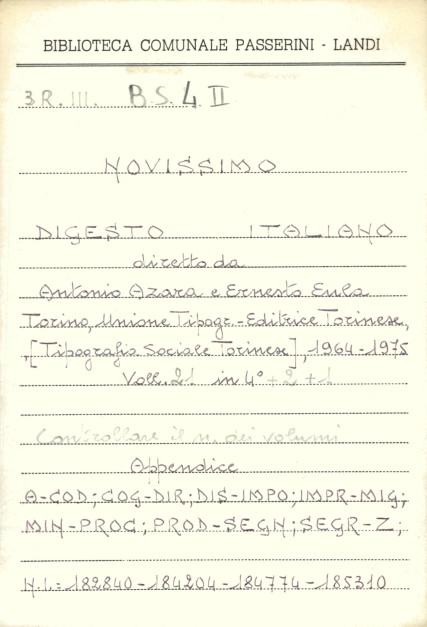 BIBLIOTECA COMUNALE PASSERINI - LANDI
3R. III. B.S. 4 II
NOVISSIMO
DIGESTO ITALIANO
diretto da
Antonio Azara e Ernesto Eula
Torino, Unione Tipogr.-Editrice Torinese,
,[Tipografia Sociale Torinese], 1964-1975
Voll. 21 in 4° + 2 + 1
Controllare il n. dei volumi
Appendice
A-COD; COG-DIR; DIS-IMPO; IMPR-MIG;
MIN-PROC; PROD-SEGN; SEGR-Z;
N.I.=182840-184204-184774-185310